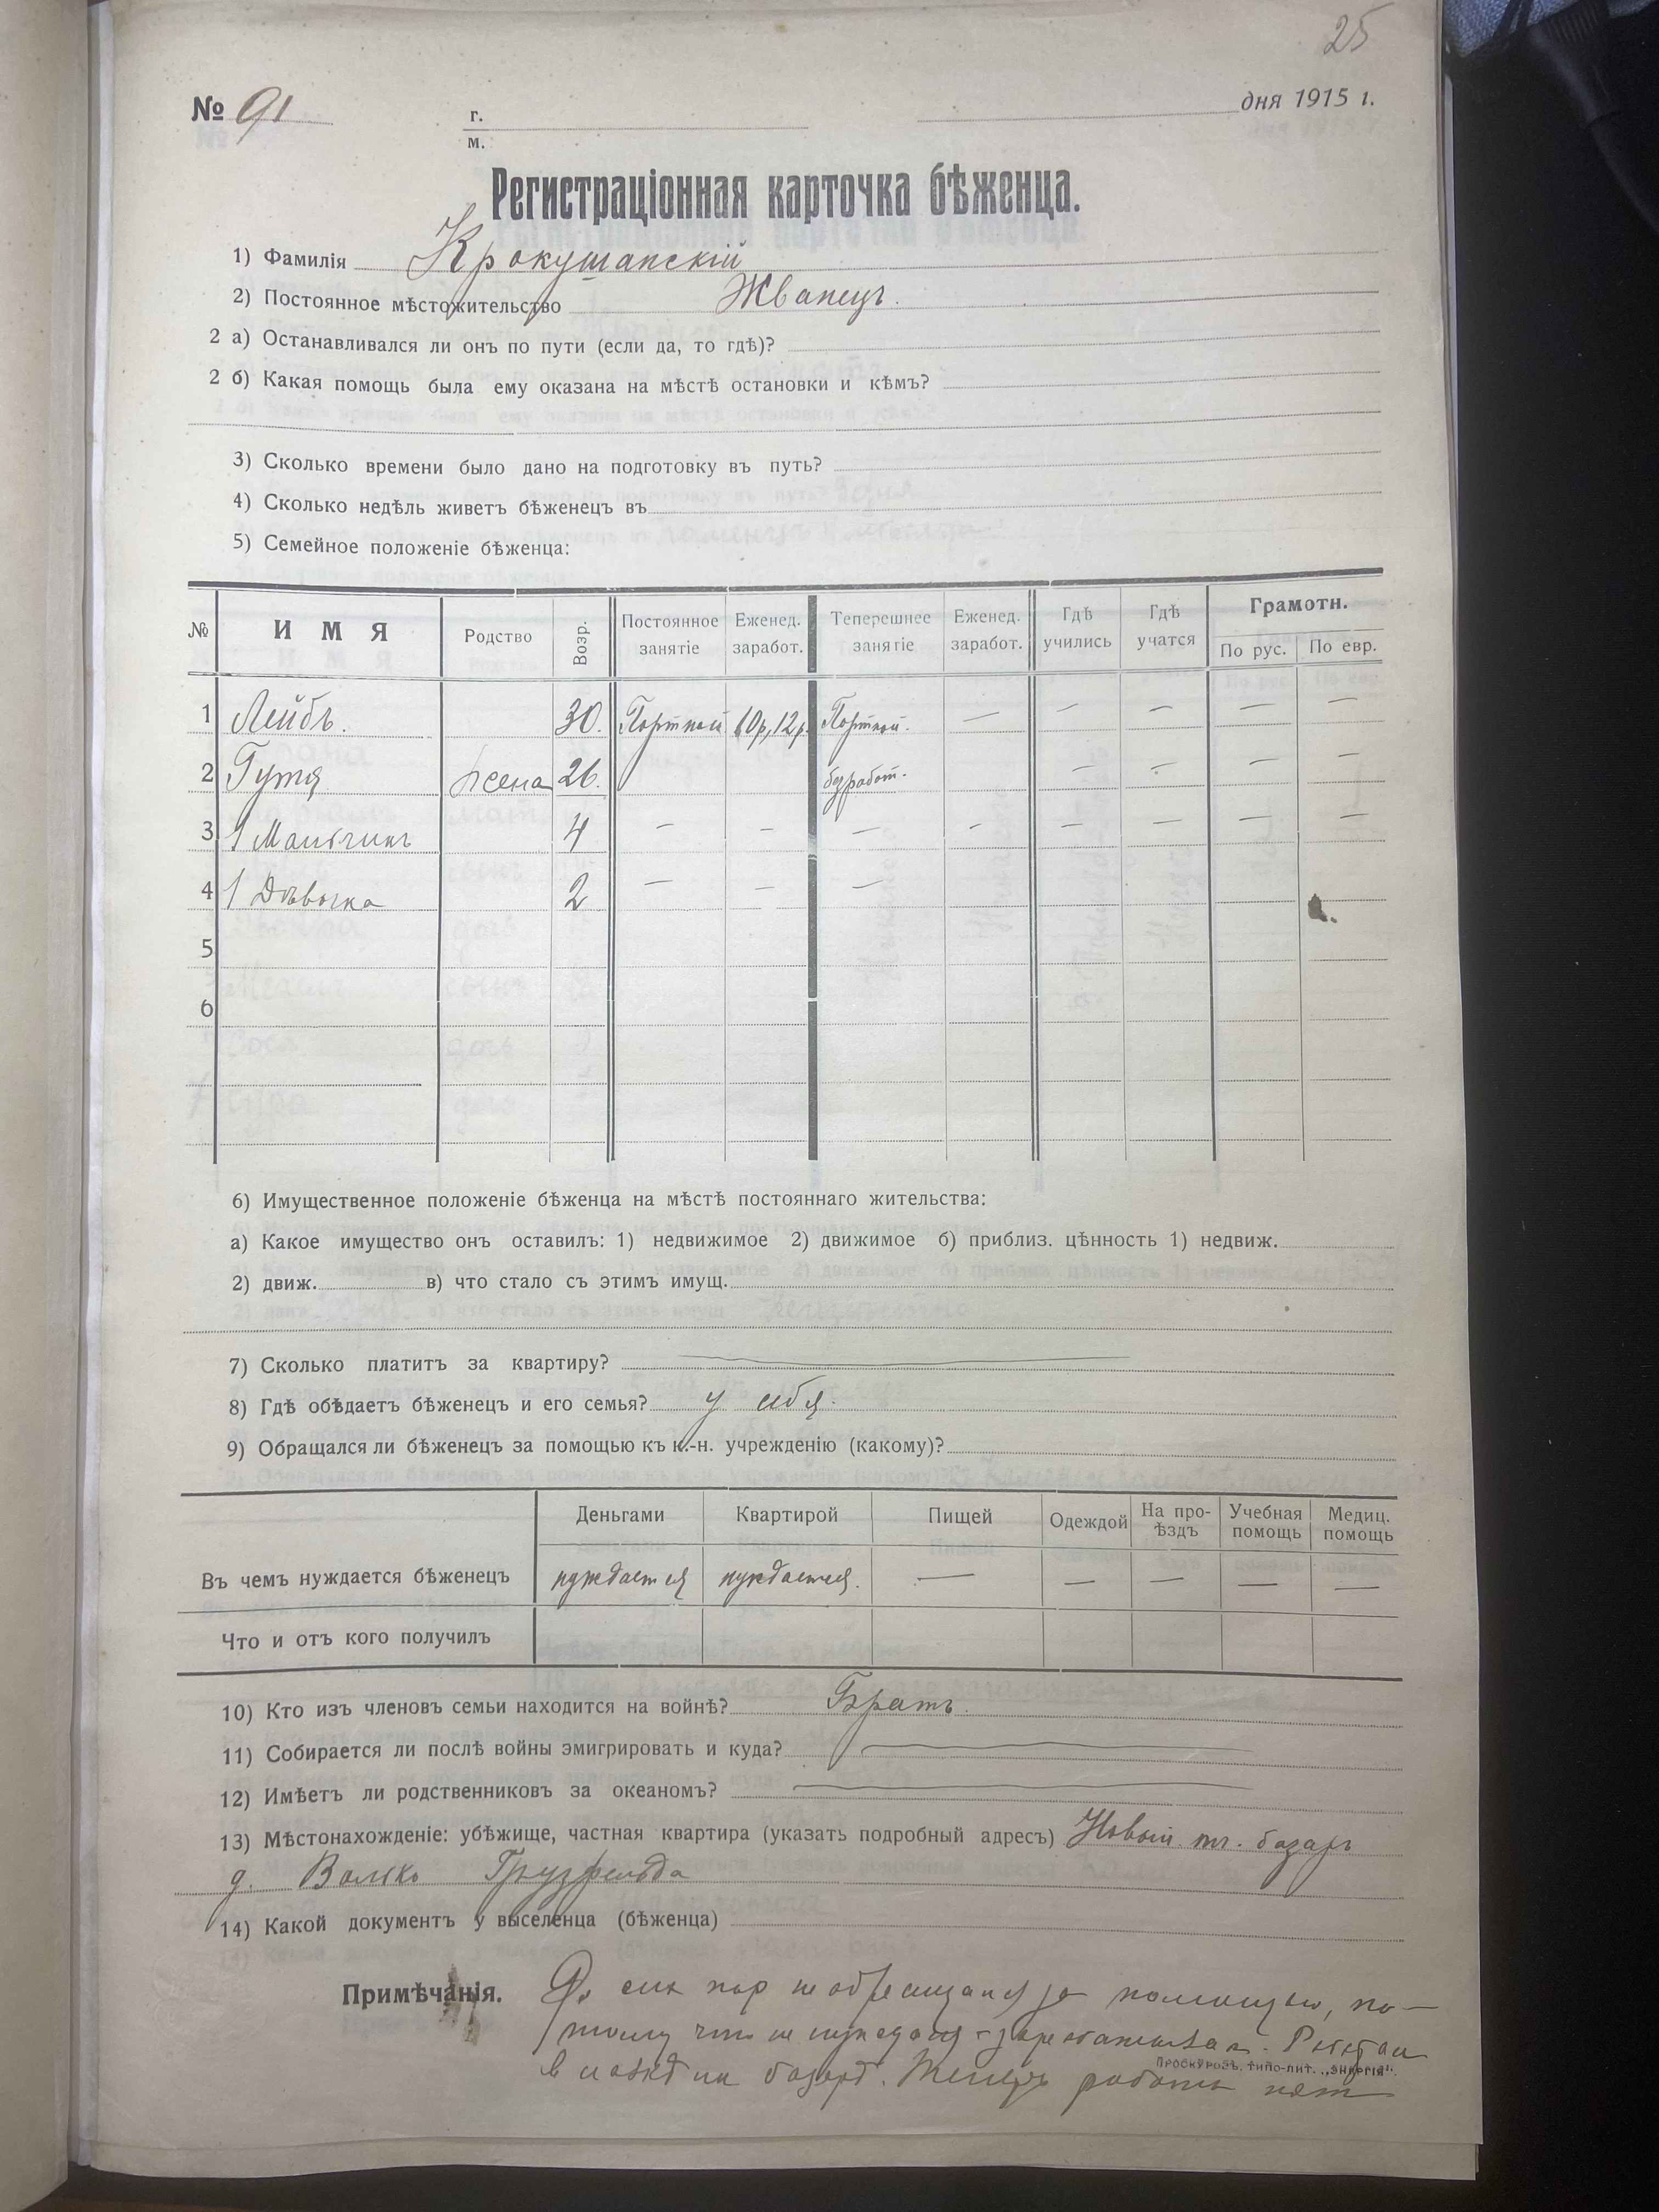 25
№ 91 г. дня 1915 г.
м.
Регистраціонная карточка бѣженца.
1) Фамилія Крокушанскій
2) Постоянное мѣстожительство Жванецъ.
2 а) Останавливался ли онъ по пути (если да, то гдѣ)?
2 б) Какая помощь была ему оказана на мѣстѣ остановки и кѣмъ?
3) Сколько времени было дано на подготовку въ путь?
4) Сколько недѣль живетъ бѣженецъ въ
5) Семейное положеніе бѣженца:
№ ИМЯ Родство Возр. Постоянное занятіе Еженед. заработ. Теперешнее занятіе Еженед. заработ. Гдѣ учились Гдѣ учатся Грамотн. По рус. По евр.
1 Лейбъ. 30. Портной 10р, 12р. Портной. — — — — —
2 Гутя жена 26. безработ. — — — —
3 1 Мальчикъ 4 — — — — — — — —
4 1 Дѣвочка 2 — — —
5
6
6) Имущественное положеніе бѣженца на мѣстѣ постояннаго жительства:
а) Какое имущество онъ оставилъ: 1) недвижимое 2) движимое б) приблиз. цѣнность 1) недвиж.
2) движ. в) что стало съ этимъ имущ.
7) Сколько платитъ за квартиру? —
8) Гдѣ обѣдаетъ бѣженецъ и его семья? у себя.
9) Обращался ли бѣженецъ за помощью къ к.-н. учрежденію (какому)?
Деньгами Квартирой Пищей Одеждой На проѣздъ Учебная помощь Медиц. помощь
Въ чемъ нуждается бѣженецъ нуждается нуждается. — — — — —
Что и отъ кого получилъ
10) Кто изъ членовъ семьи находится на войнѣ? Братъ.
11) Собирается ли послѣ войны эмигрировать и куда? —
12) Имѣетъ ли родственниковъ за океаномъ? —
13) Мѣстонахожденіе: убѣжище, частная квартира (указать подробный адресъ) Новый пл. базаръ
д. Волько
14) Какой документъ у выселенца (бѣженца)
Примѣчанія. До сих пор не обращался за помощью, по-
тому что не нуждался - зарабатывал.
в на базарѣ. Теперь работы нет
Проскуровъ, типо-лит. „Энергія".